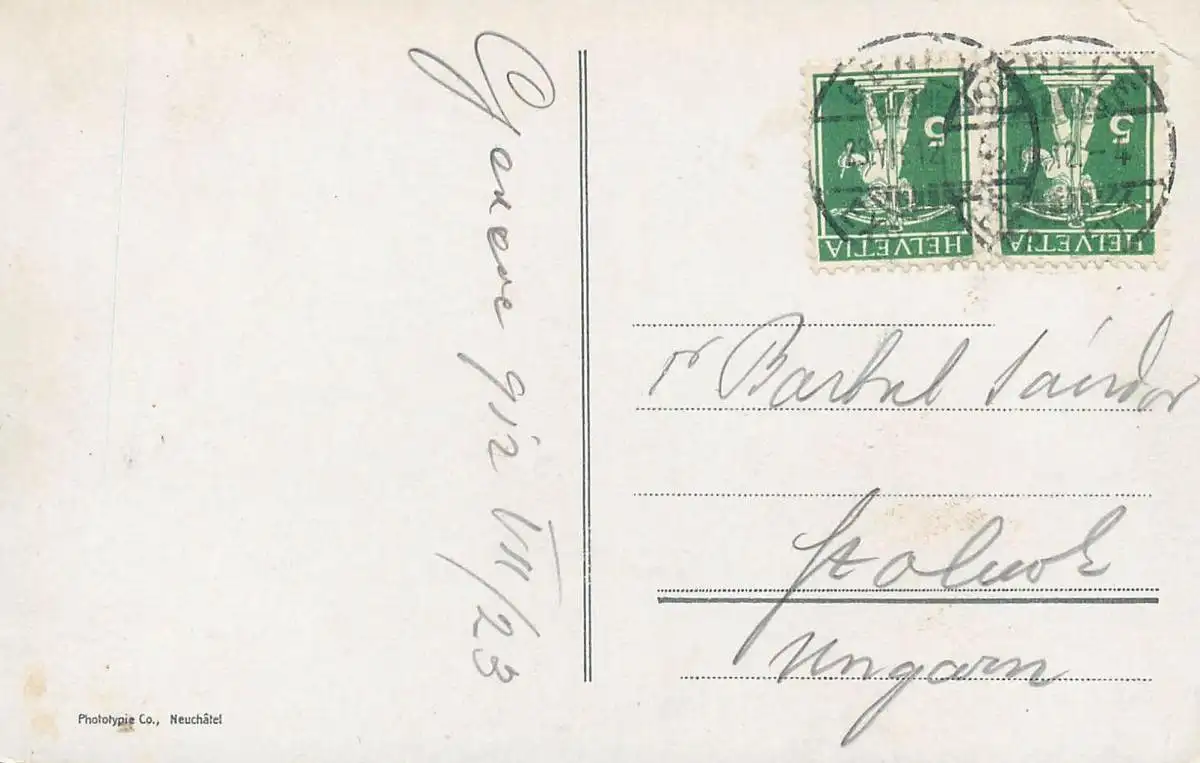 Geneve 912 VII/23
HELVETIA 5
HELVETIA 5
Sándor
Szolnok
Ungarn
Phototypie Co., Neuchâtel